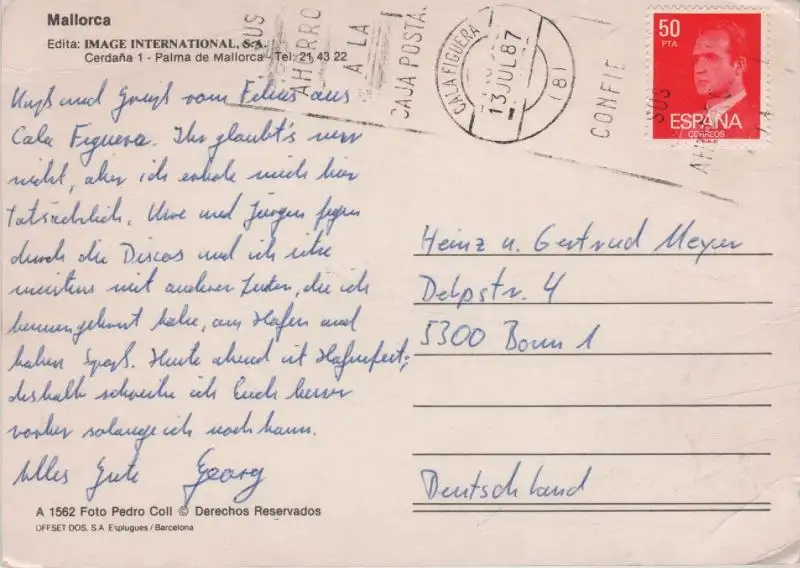 Mallorca
Edita: IMAGE INTERNATIONAL, S.A.
Cerdaña 1 - Palma de Mallorca - Tel: 21 43 22
SUS
AHORRO
A LA
CAJA POSTAL
CALA FIGUERA
13 JUL 87
(8)
CONFIE
SUS
50
PTA
ESPAÑA
CORREOS
und Gruß vom aus
Cala Figuera. Ihr glaubt's nur
nicht, aber ich erhole mich hier
tatsächlich. Uwe und Jürgen fegen
durch die Discos und ich sitze
meistens mit anderen Leuten, die ich
kennengelernt habe, am Hafen und
haben Spaß. Heute abend ist Hafenfest,
deshalb schreibe ich Euch besser
vorher solange ich noch kann.
Alles Gute Georg
Heinz u. Gertrud Meyer
Delpstr. 4
5300 Bonn 1
Deutschland
A 1562 Foto Pedro Coll © Derechos Reservados
OFFSET DOS, S.A. Esplugues / Barcelona